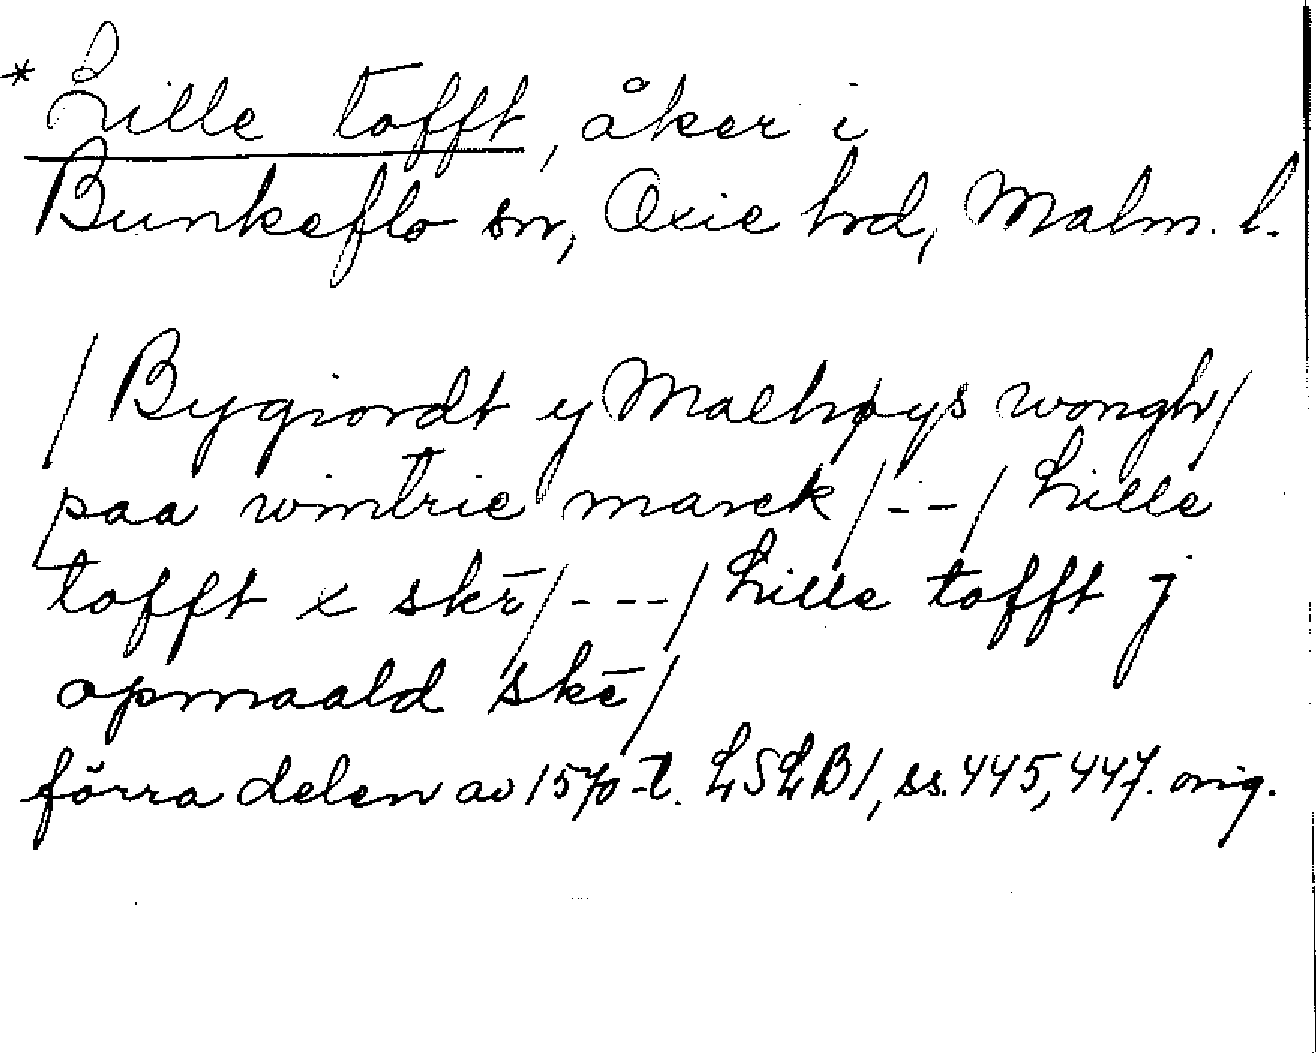 * Lille tofft, åker i
Bunkeflo sn, Oxie hrd, Malm. l.
/ Bygiordt y Malhøys wongh /
paa wintrie marck / - - / Lille
tofft x skē / - - - / Lille tofft j
opmaald skē /
förra delen av 1570-t. LSLB 1, ss. 445, 447. orig.